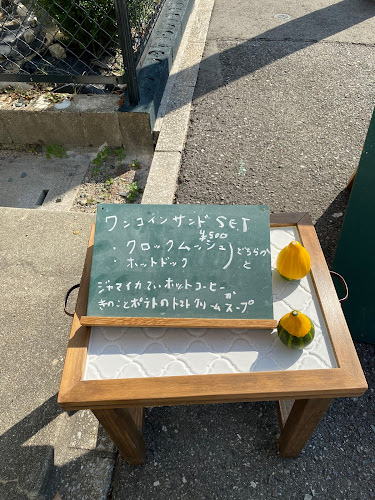 ワンコインサンドSET
¥500
・クロックムッシュ
・ホットドック
)どちらか
と
ジャマイカてぃホットコーヒー
か
きのことポテトのトマトクリームスープ